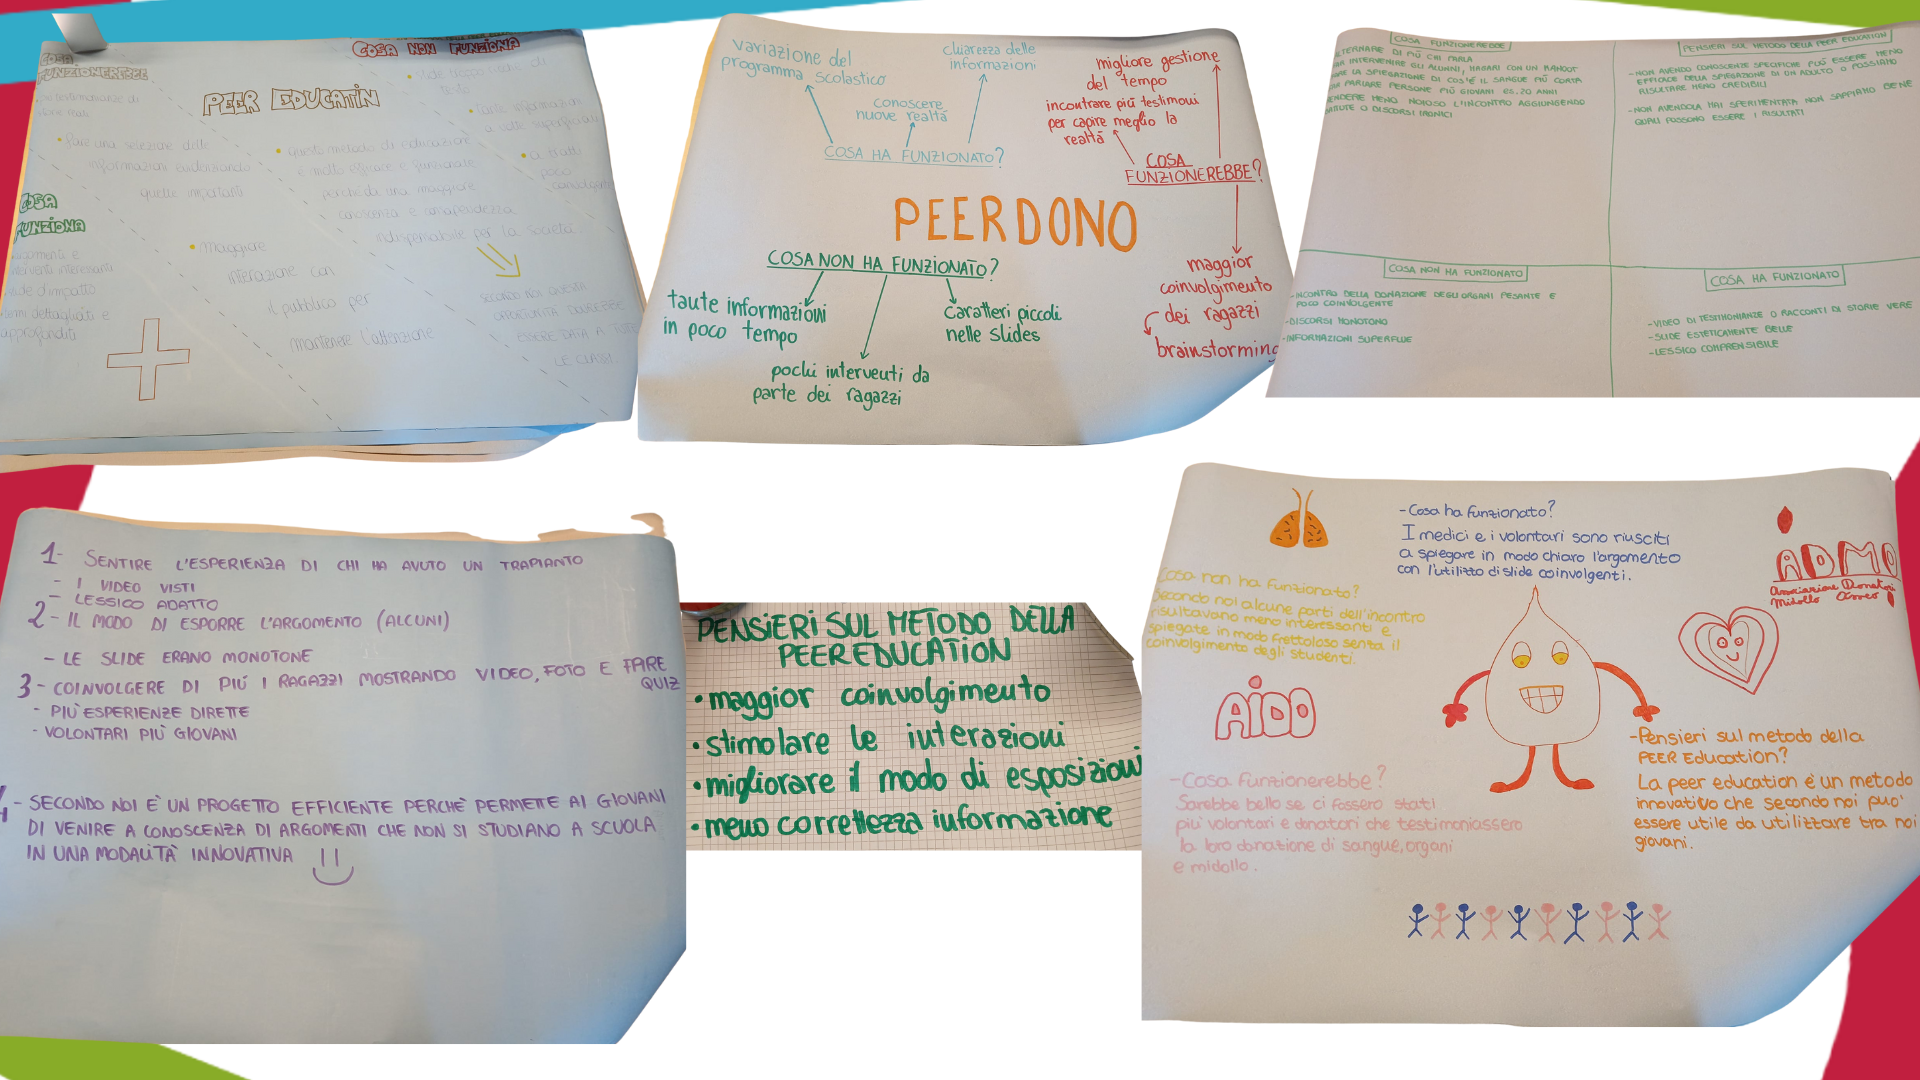 COSA
FUNZIONEREBBE
COSA NON FUNZIONA
PEER EDUCATIN
fare una selezione delle
informazioni evidenziando
quelle importanti
COSA
FUNZIONA
• maggiore
interazione con
il pubblico per
mantenere l'attenzione
• questo metodo di educazione
è molto efficace e funzionale
perché da una maggiore
conoscenza e consapevolezza
indispensabile per la società
SECONDO NOI QUESTA
OPPORTUNITÀ DOVREBBE
ESSERE DATA A TUTTE
LE CLASSI.
• a tratti
poco
variazione del
programma scolastico
chiarezza delle
informazioni
conoscere
nuove realtà
COSA HA FUNZIONATO?
migliore gestione
del tempo
incontrare più testimoni
per capire meglio la
realtà
COSA
FUNZIONEREBBE?
PEER DONO
COSA NON HA FUNZIONATO?
tante informazioni
in poco tempo
Caratteri piccoli
nelle slides
pochi interventi da
parte dei ragazzi
maggior
coinvolgimento
dei ragazzi
brainstorming
COSA FUNZIONEREBBE
DI PIÙ CHI PARLA
INTERVENIRE GLI ALUNNI, MAGARI CON UN KAHOOT
LA SPIEGAZIONE DI COS'È IL SANGUE PIÙ CORTA
PARLARE PERSONE PIÙ GIOVANI ES. 20 ANNI
MENO NOIOSO L'INCONTRO AGGIUNGENDO
O DISCORSI IRONICI
PENSIERI SUL METODO DELLA PEER EDUCATION
-NON AVENDO CONOSCENZE SPECIFICHE PUÒ ESSERE MENO
EFFICACE DELLA SPIEGAZIONE DI UN ADULTO O POSSIAMO
RISULTARE MENO CREDIBILI
-NON AVENDOLA MAI SPERIMENTATA NON SAPPIAMO BENE
QUALI POSSONO ESSERE I RISULTATI
COSA NON HA FUNZIONATO
-INCONTRO DELLA DONAZIONE DEGLI ORGANI PESANTE E
POCO COINVOLGENTE
-DISCORSI MONOTONO
-INFORMAZIONI SUPERFLUE
COSA HA FUNZIONATO
-VIDEO DI TESTIMONIANZE O RACCONTI DI STORIE VERE
-SLIDE ESTETICAMENTE BELLE
-LESSICO COMPRENSIBILE
1- SENTIRE L'ESPERIENZA DI CHI HA AVUTO UN TRAPIANTO
- I VIDEO VISTI
- LESSICO ADATTO
2- IL MODO DI ESPORRE L'ARGOMENTO (ALCUNI)
- LE SLIDE ERANO MONOTONE
3- COINVOLGERE DI PIÙ I RAGAZZI MOSTRANDO VIDEO, FOTO E FARE
QUIZ
- PIÙ ESPERIENZE DIRETTE
- VOLONTARI PIÙ GIOVANI
4- SECONDO NOI È UN PROGETTO EFFICIENTE PERCHÈ PERMETTE AI GIOVANI
DI VENIRE A CONOSCENZA DI ARGOMENTI CHE NON SI STUDIANO A SCUOLA
IN UNA MODALITÀ INNOVATIVA
PENSIERI SUL METODO DELLA
PEER EDUCATION
• maggior coinvolgimento
• stimolare le interazioni
• migliorare il modo di esposizioni
• meno correttezza informazione
-Cosa ha funzionato?
I medici e i volontari sono riusciti
a spiegare in modo chiaro l'argomento
con l'utilizzo di slide coinvolgenti.
ADMO
Associazione Donatori
Midollo Osseo
Cosa non ha funzionato?
Secondo noi alcune parti dell'incontro
risultavano meno interessanti e
spiegate in modo frettoloso senza il
coinvolgimento degli studenti.
AIDO
-Cosa funzionerebbe?
Sarebbe bello se ci fossero stati
più volontari e donatori che testimoniassero
la loro donazione di sangue, organi
e midollo.
-Pensieri sul metodo della
PEER Education?
La peer education è un metodo
innovativo che secondo noi puo'
essere utile da utilizzare tra noi
giovani.